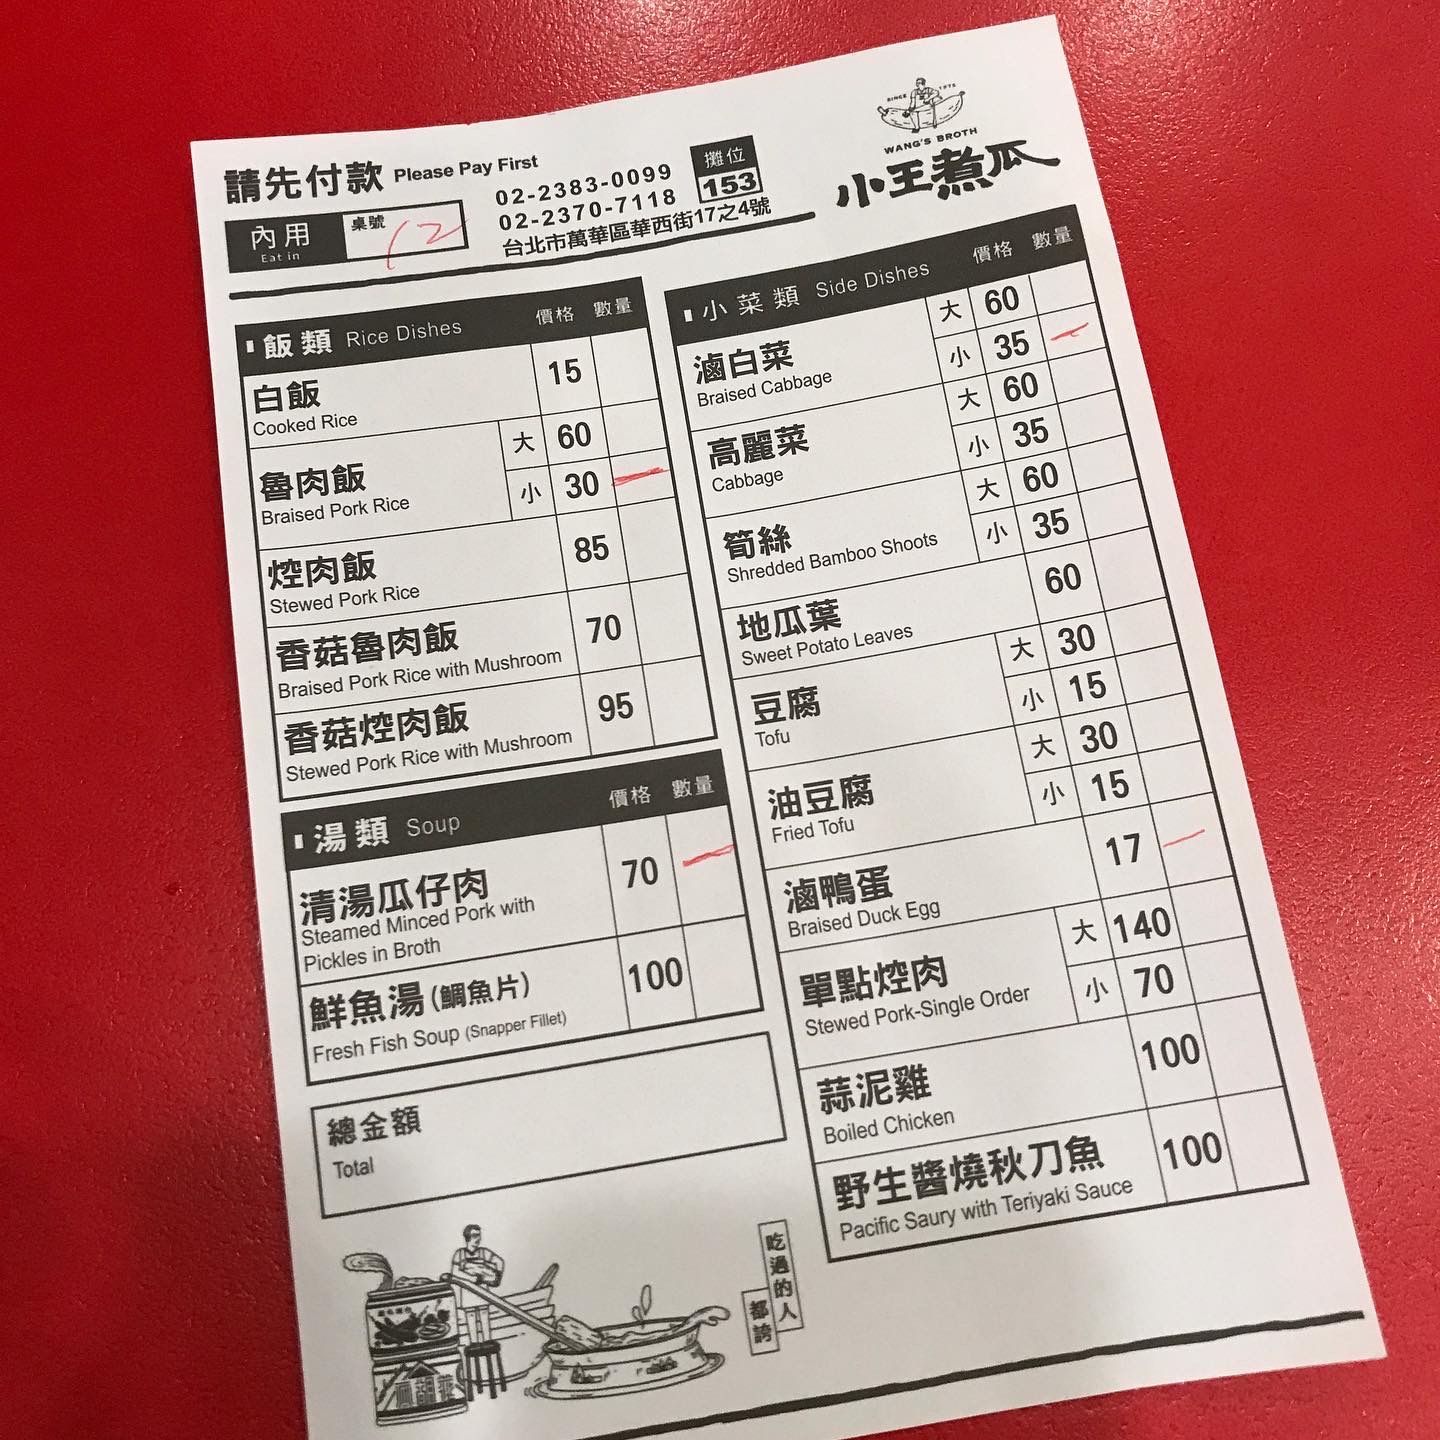 請先付款 Please Pay First
內用 Eat in
桌號 12
02-2383-0099
02-2370-7118
攤位 153
台北市萬華區華西街17之4號
SINCE 1975
WANG'S BROTH
小王煮瓜
飯類 Rice Dishes 價格 數量
白飯 15
Cooked Rice
魯肉飯 大 60
Braised Pork Rice 小 30
焢肉飯 85
Stewed Pork Rice
香菇魯肉飯 70
Braised Pork Rice with Mushroom
香菇焢肉飯 95
Stewed Pork Rice with Mushroom
湯類 Soup 價格 數量
清湯瓜仔肉 70
Steamed Minced Pork with
Pickles in Broth
鮮魚湯(鯛魚片) 100
Fresh Fish Soup (Snapper Fillet)
總金額
Total
小菜類 Side Dishes 價格 數量
滷白菜 大 60
Braised Cabbage 小 35
高麗菜 大 60
Cabbage 小 35
筍絲 大 60
Shredded Bamboo Shoots 小 35
地瓜葉 60
Sweet Potato Leaves
豆腐 大 30
Tofu 小 15
油豆腐 大 30
Fried Tofu 小 15
滷鴨蛋 17
Braised Duck Egg
單點焢肉 大 140
Stewed Pork-Single Order 小 70
蒜泥雞 100
Boiled Chicken
野生醬燒秋刀魚 100
Pacific Saury with Teriyaki Sauce
吃過的人
都誇